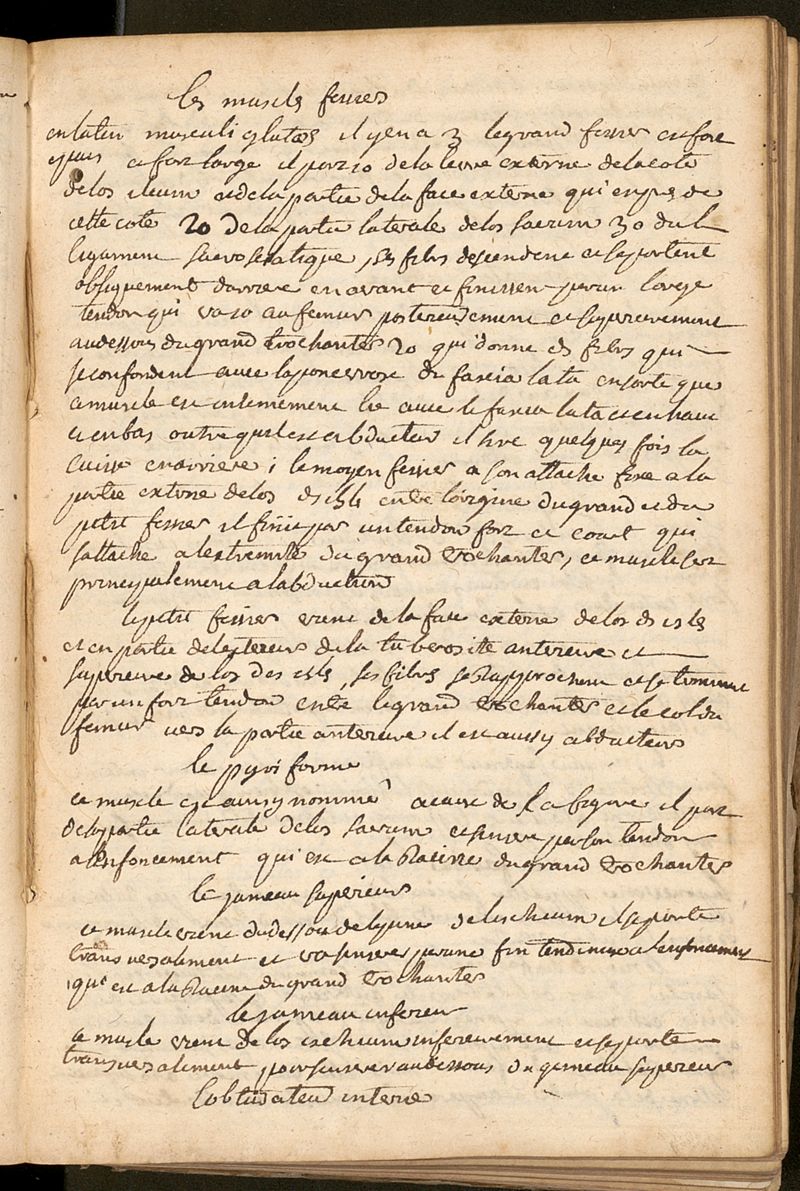 les muscles fessiers
en latin musculi glutaei il y en a 3 le grand fessier est fort
epais et fort large il part 1o de la levre externe de la cote
de los ileum et de la partie de la face externe qui est pres de
cette cote 2o De la partie laterale de los sacrum 3o du
ligament sacrosciatique, ses fibres descendent et se portent
obliquement darriere en avant et finissent par un large
tendon qui va 1o au femur posterieurement et superieurement
au dessous du grand trochanter 2o qui donne des fibres qui
se confondent avec laponevrose du fascia lata en sorte que
ce muscle est intimement lie avec le fascia lata et en haut
et en bas outre quil est abducteur il tire quelques fois la
cuisse en arriere; le moyen fessier a son attache fixe a la
partie externe de los des isles entre lorigine du grand et du
petit fessier il finit par un tendon fort et court qui
sattache a lextremite du grand trochanter, ce muscle sert
principalement a labduction
le petit fessier vient de la face externe de los des isles
et en partie de lexterieur de la tuberosite anterieure et
superieure de los des isles, ses fibres se Rapprochent et se terminent
par un fort tendon entre le grand trochanter et le col du
femur vers la partie anterieure il est aussy abducteur
le pyriforme
ce muscle est ainsy nommé a cause de sa figure il part
de la partie laterale de los sacrum et sinsere par son tendon
a lenfoncement qui est a la Racine du grand trochanter
le jumeau superieur
ce muscle vient du dessous de lepine de lischeum il se porte
transversalement et va sinserer par une fin tendineuse a lenfoncement
qui est a la Racine du grand trochanter
le jumeau inferieur
ce muscle vient de los ischeum inferieurement et se porte
transversalement pour sinserer au dessous du gemeau superieur
lobturateur interne